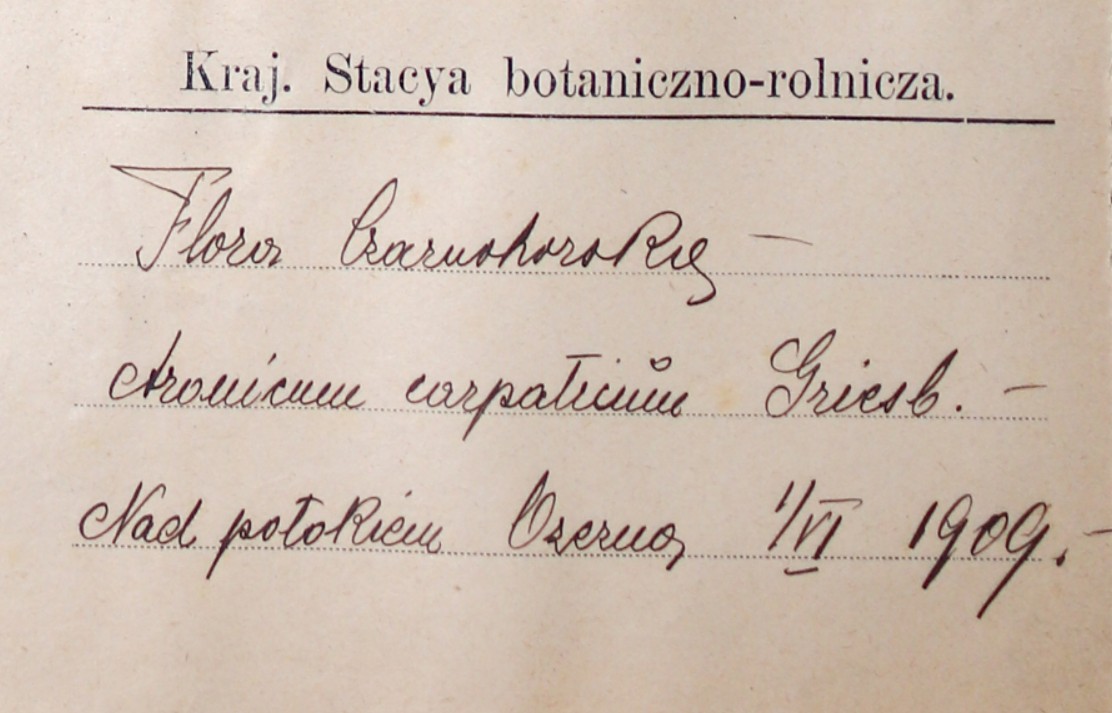 Kraj. Stacya botaniczno-rolnicza.
Flora Czarnohorską —
Aronicum carpaticum Griesb. —
Nad potokiem Czerną 1/VI 1909. —